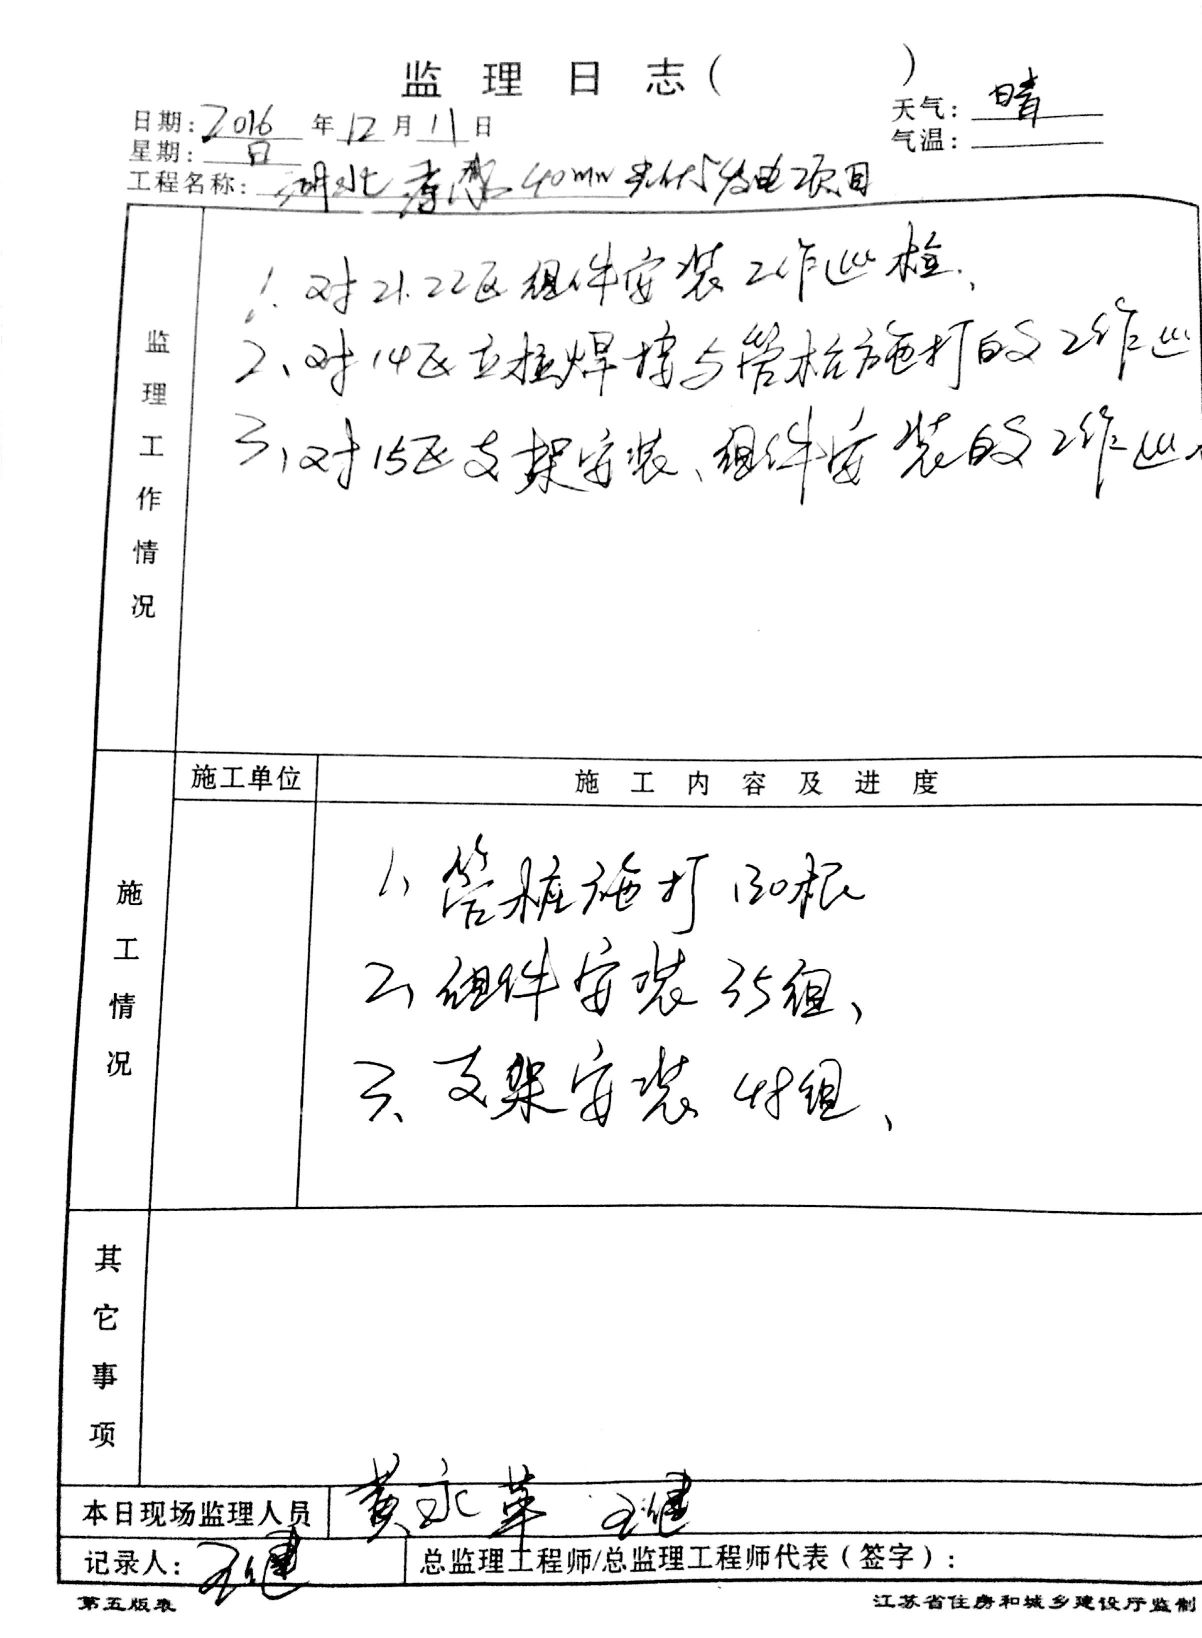 监理日志(          )
日期:2016年12月11日
天气:晴
星期:日
气温:
工程名称:湖北孝感40MW光伏发电项目
监理工作情况
1、对21.22区组件安装工作巡检、
2、对14区立柱焊接与管桩施打的工作巡
3、对15区支架安装、组件安装的工作巡
施工情况
施工单位
施工内容及进度
1、管桩施打130根
2、组件安装35组、
3、支架安装48组、
其它事项
本日现场监理人员 黄永革 王健
记录人:王健
总监理工程师/总监理工程师代表(签字):
第五版表
江苏省住房和城乡建设厅监制